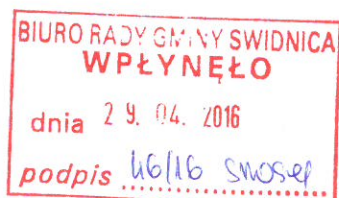 BIURO RADY GMINY SWIDNICA
WPŁYNĘŁO
dnia 29. 04. 2016
podpis 46/16